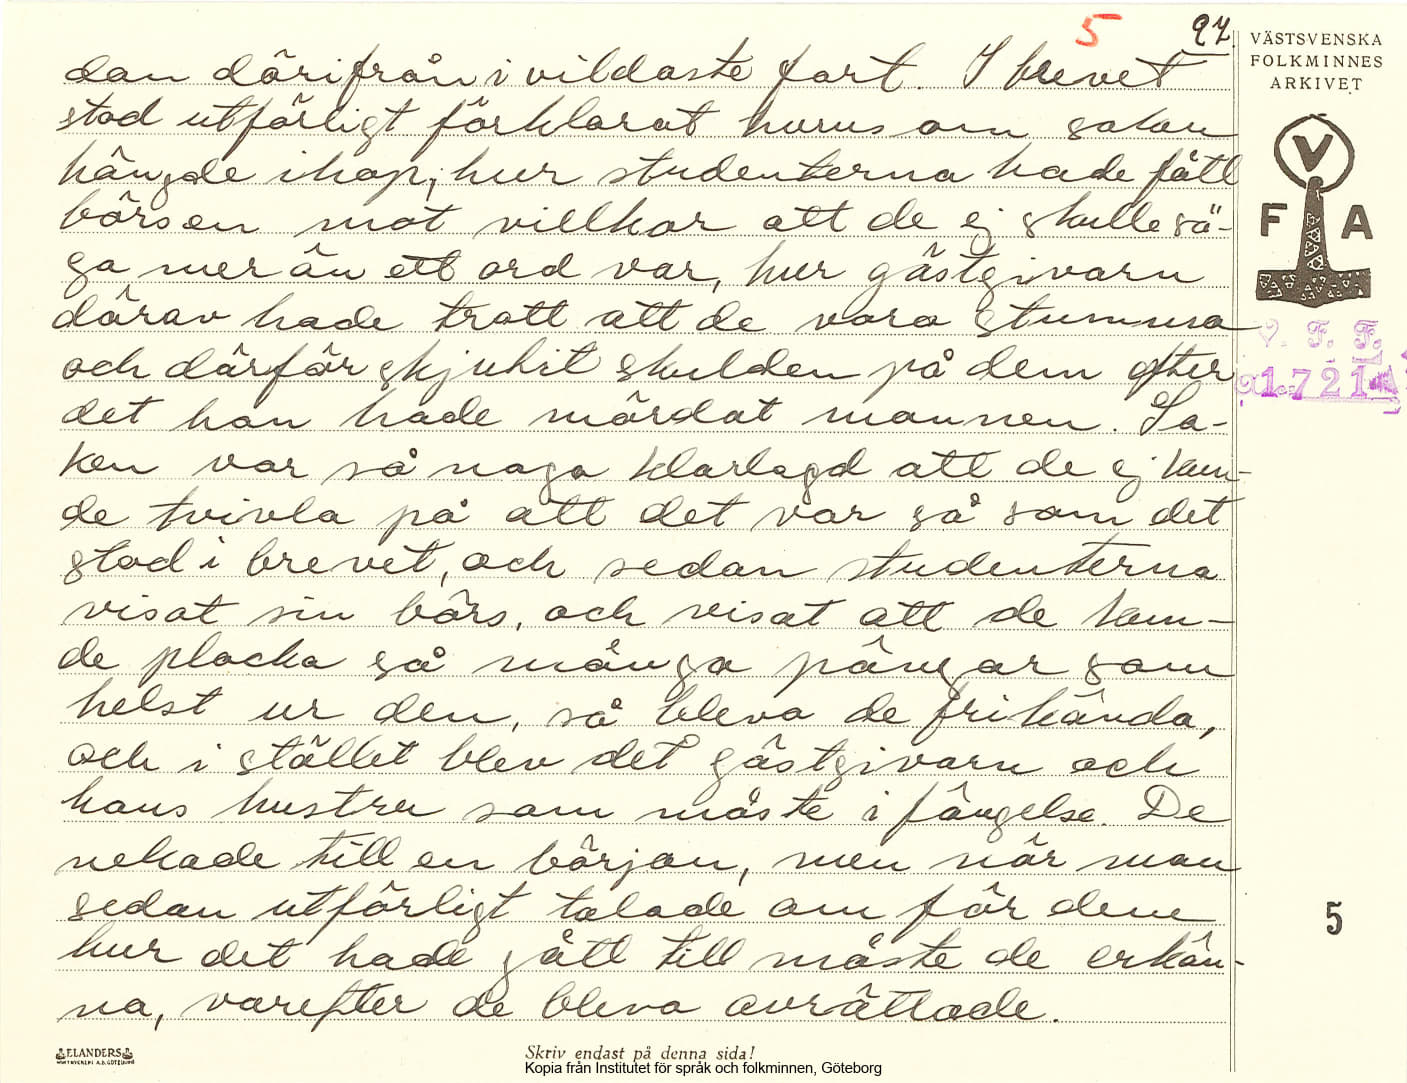 5 97.
VÄSTSVENSKA
FOLKMINNES
ARKIVET
V
F A
V. F. F.
1721
dan därifrån i vildaste fart. I brevet
stod utförligt förklarat hurusom saken
hängde ihop; hur studenterna hade fått
börsen mot villkor att de ej skulle sä-
ga mer än ett ord var, hur gästgivarn
därav hade trott att de voro stumma
och därför skjutit skulden på dem efter
det han hade mördat mannen. Sa-
ken var så noga klarlagd att de ej kun-
de tvivla på att det var så som det
stod i brevet, och sedan studenterna
visat sin börs, och visat att de kun-
de plocka så många pängar som
helst ur den, så bleva de frikända,
och i stället blev det gästgivarn och
hans hustru som måste i fängelse. De
nekade till en början, men när man
sedan utförligt talade om för dem
hur det hade gått till måste de erkän-
na, varefter de bleva avrättade.
5
ELANDERS
Skriv endast på denna sida!
Kopia från Institutet för språk och folkminnen, Göteborg